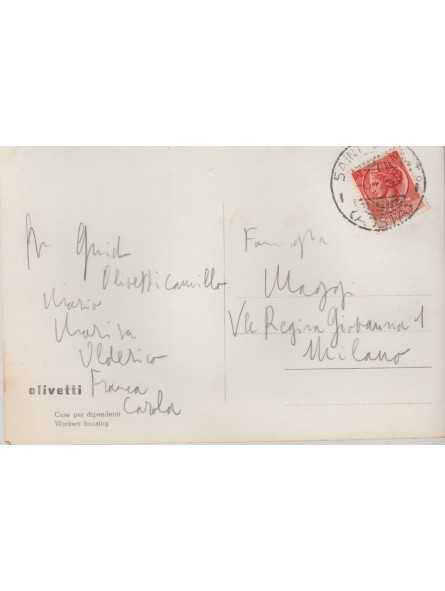 Guido
Olivetti Camillo
Mario
Marisa
Ulderico
Franca
Carola
olivetti
Case per dipendenti
Workers housing
Famiglia
Maggi
Vle Regina Giovanna 1
Milano